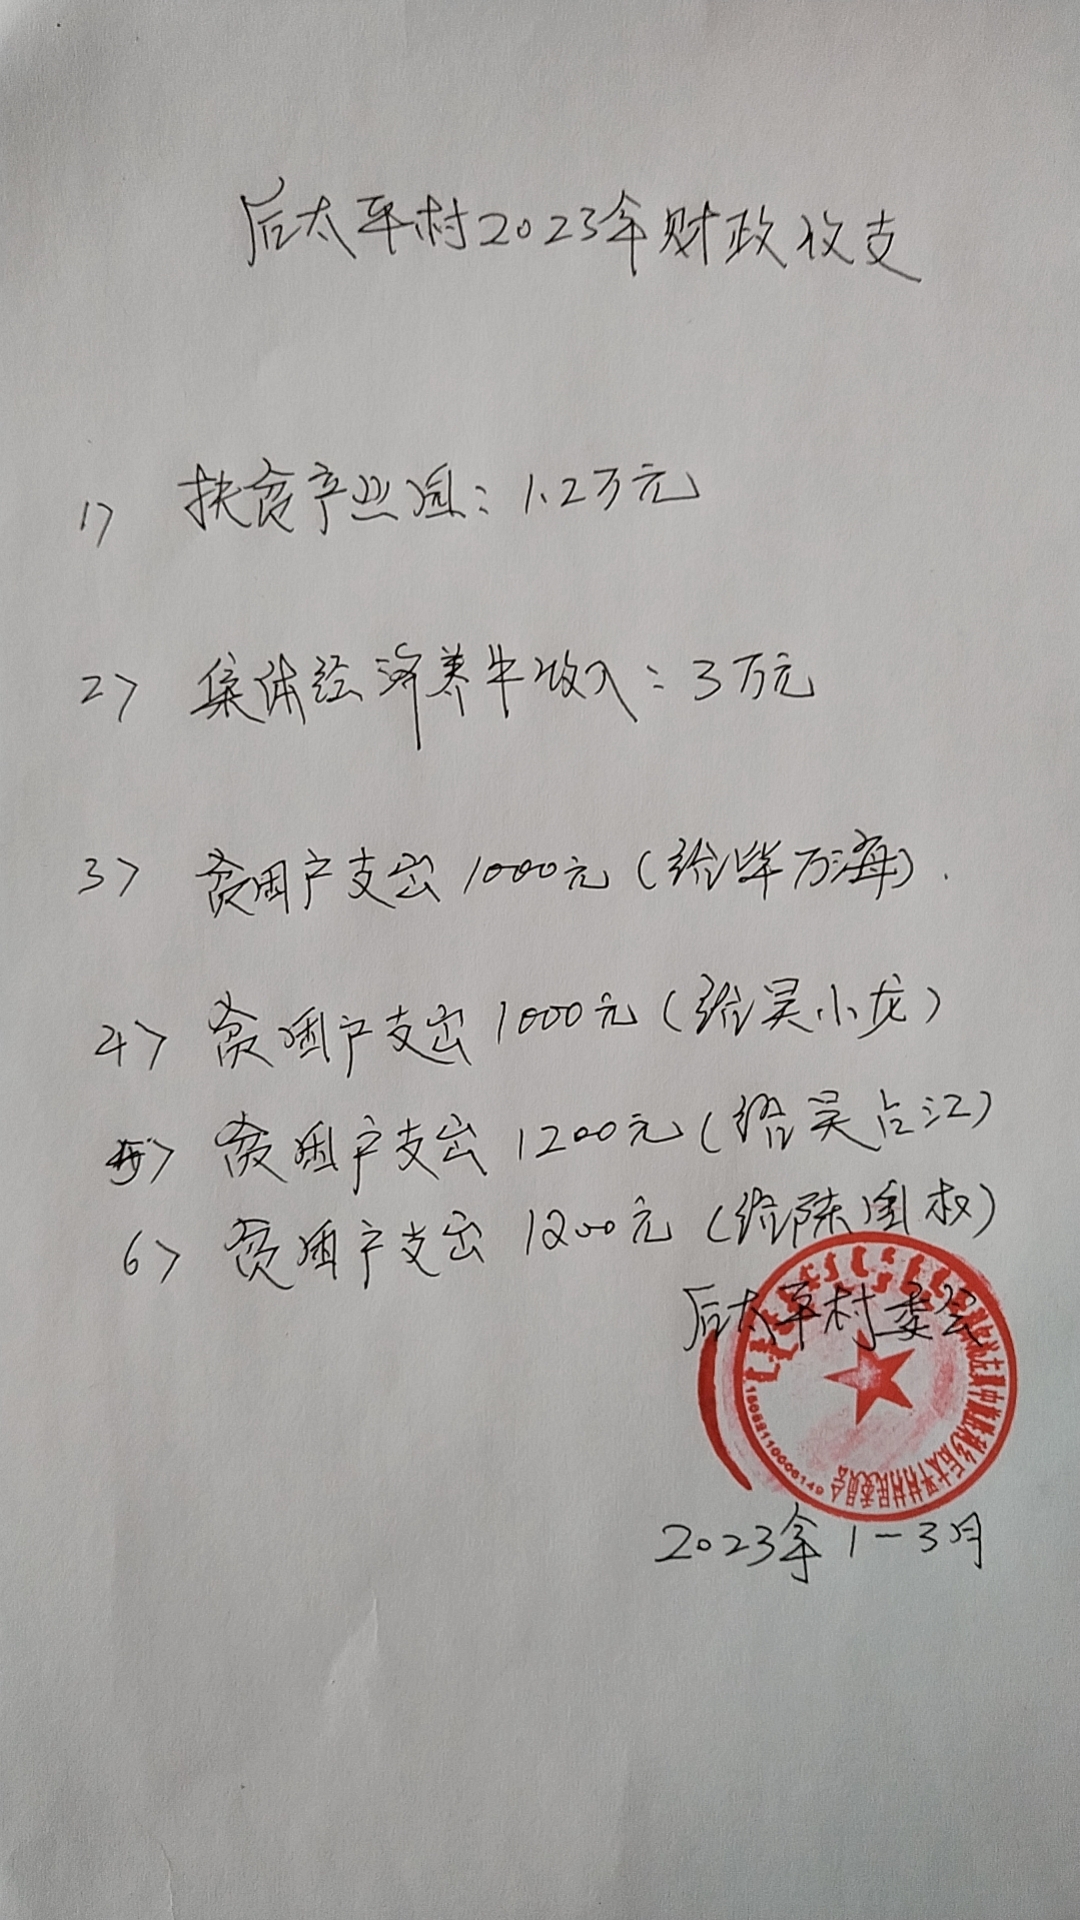 后太平村2023年财政收支
1> 扶贫产业 : 1.2万元
2> 集体经济养牛收入: 3万元
3> 贫困户支出1000元(给毕万海).
4> 贫困户支出1000元(给吴小龙)
5> 贫困户支出1200元(给吴占江)
6> 贫困户支出1200元(给陈国权)
后太平村委会
后太平村村民委员会
15052110006149
2023年1-3月